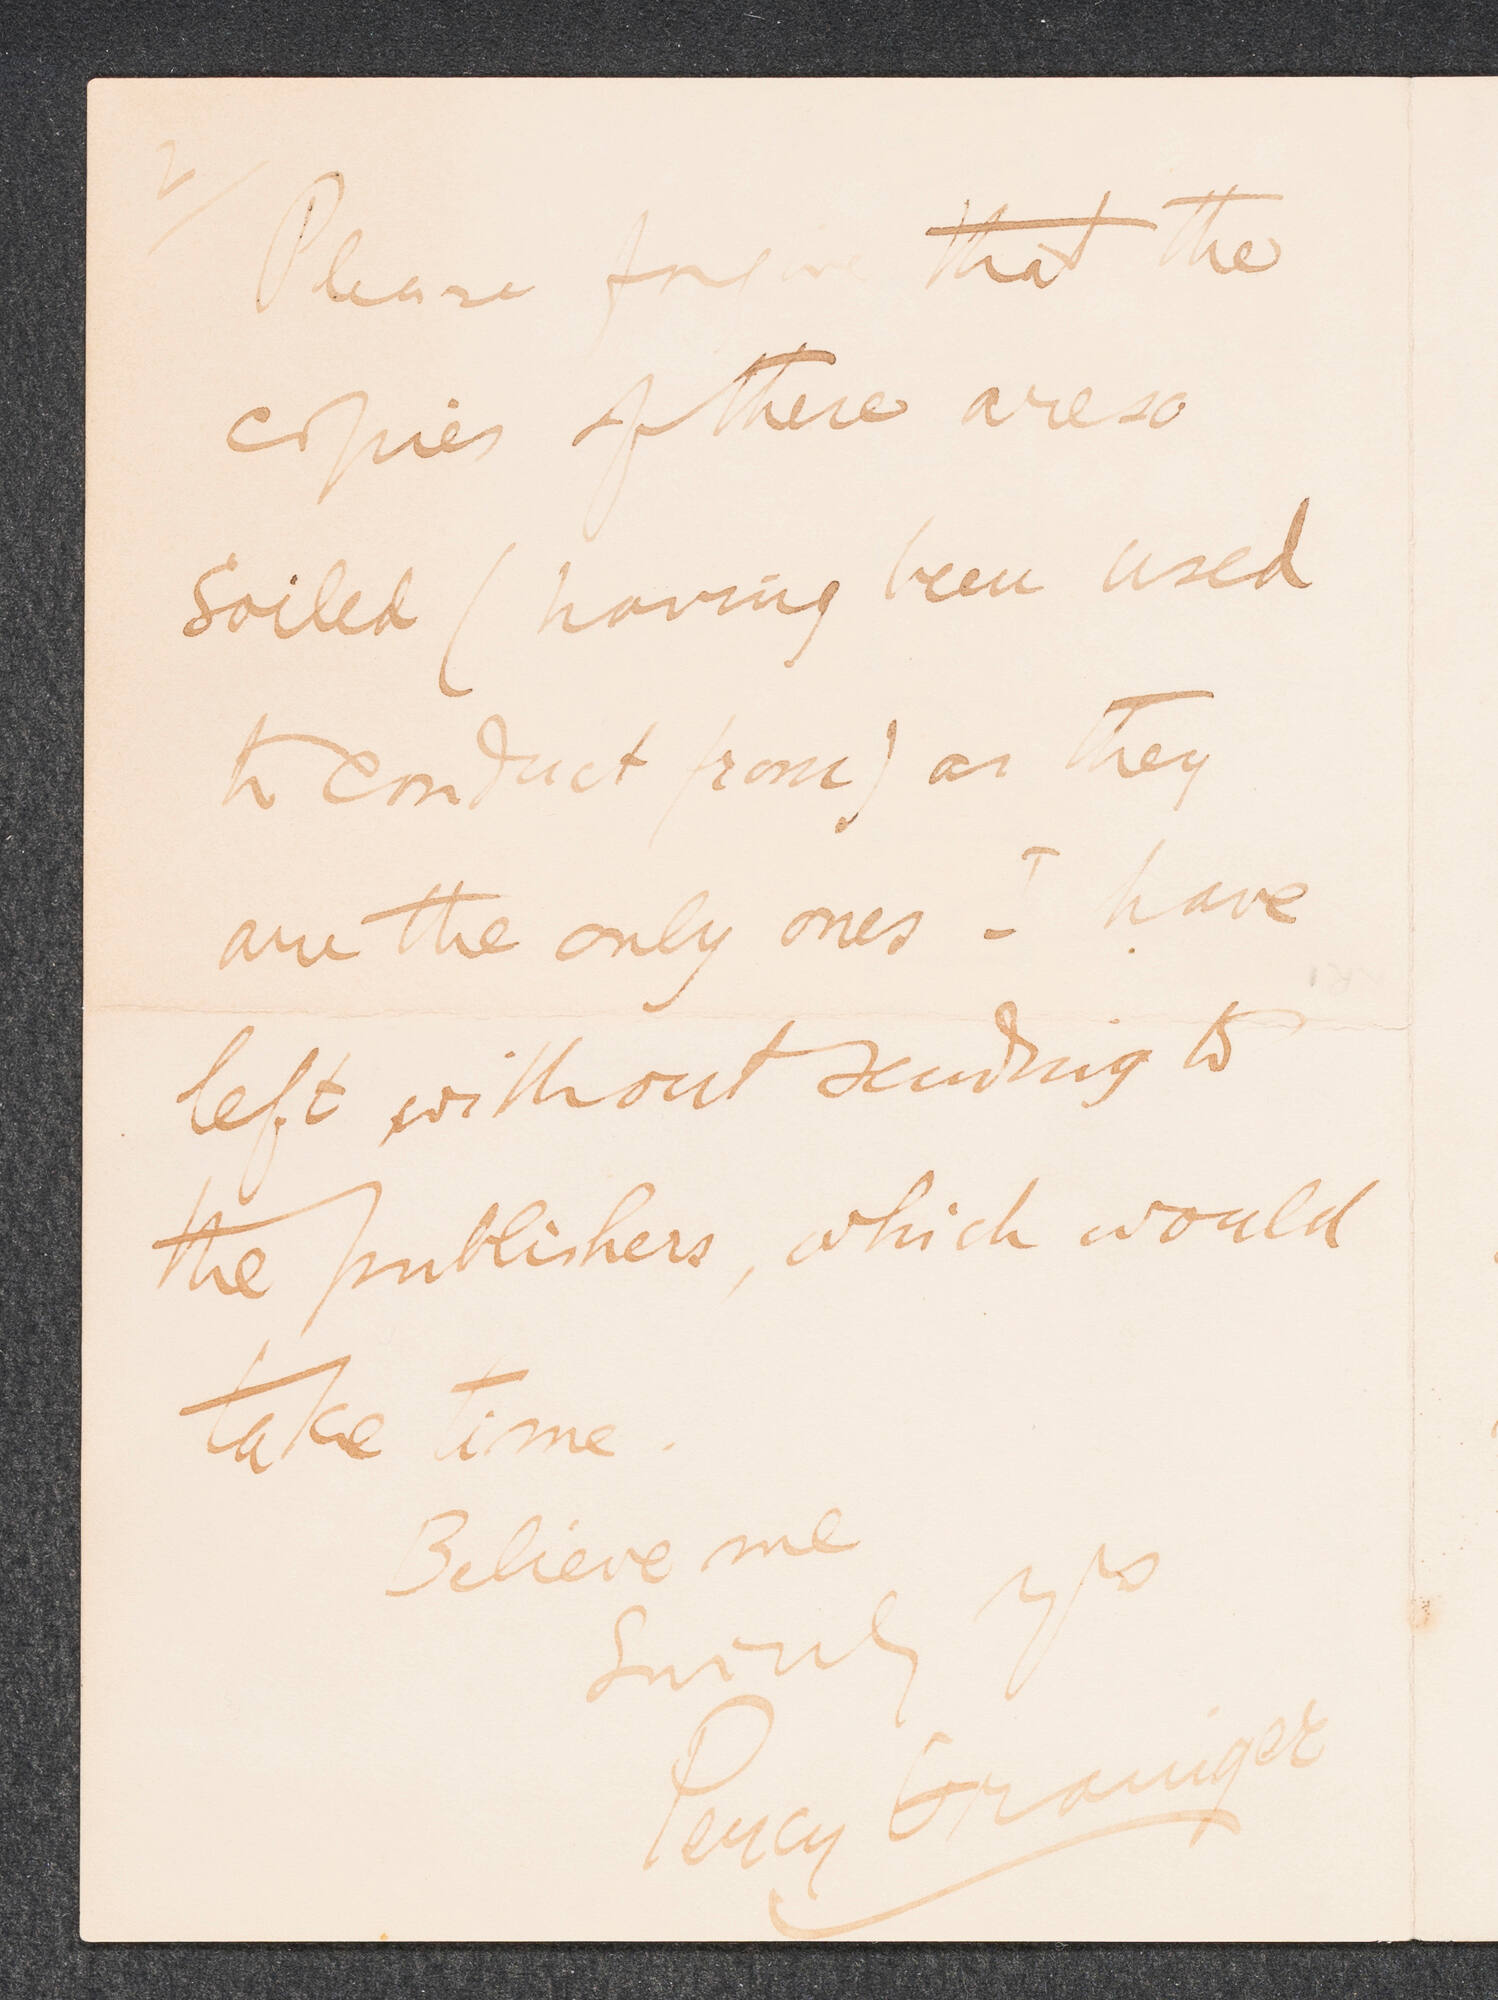 2/
Please forgive that the
copies of these are so
soiled (having been used
to conduct from) as they
are the only ones I have
left without sending to
the publishers, which would
take time.
Believe me
Sincerely yrs
Percy Grainger